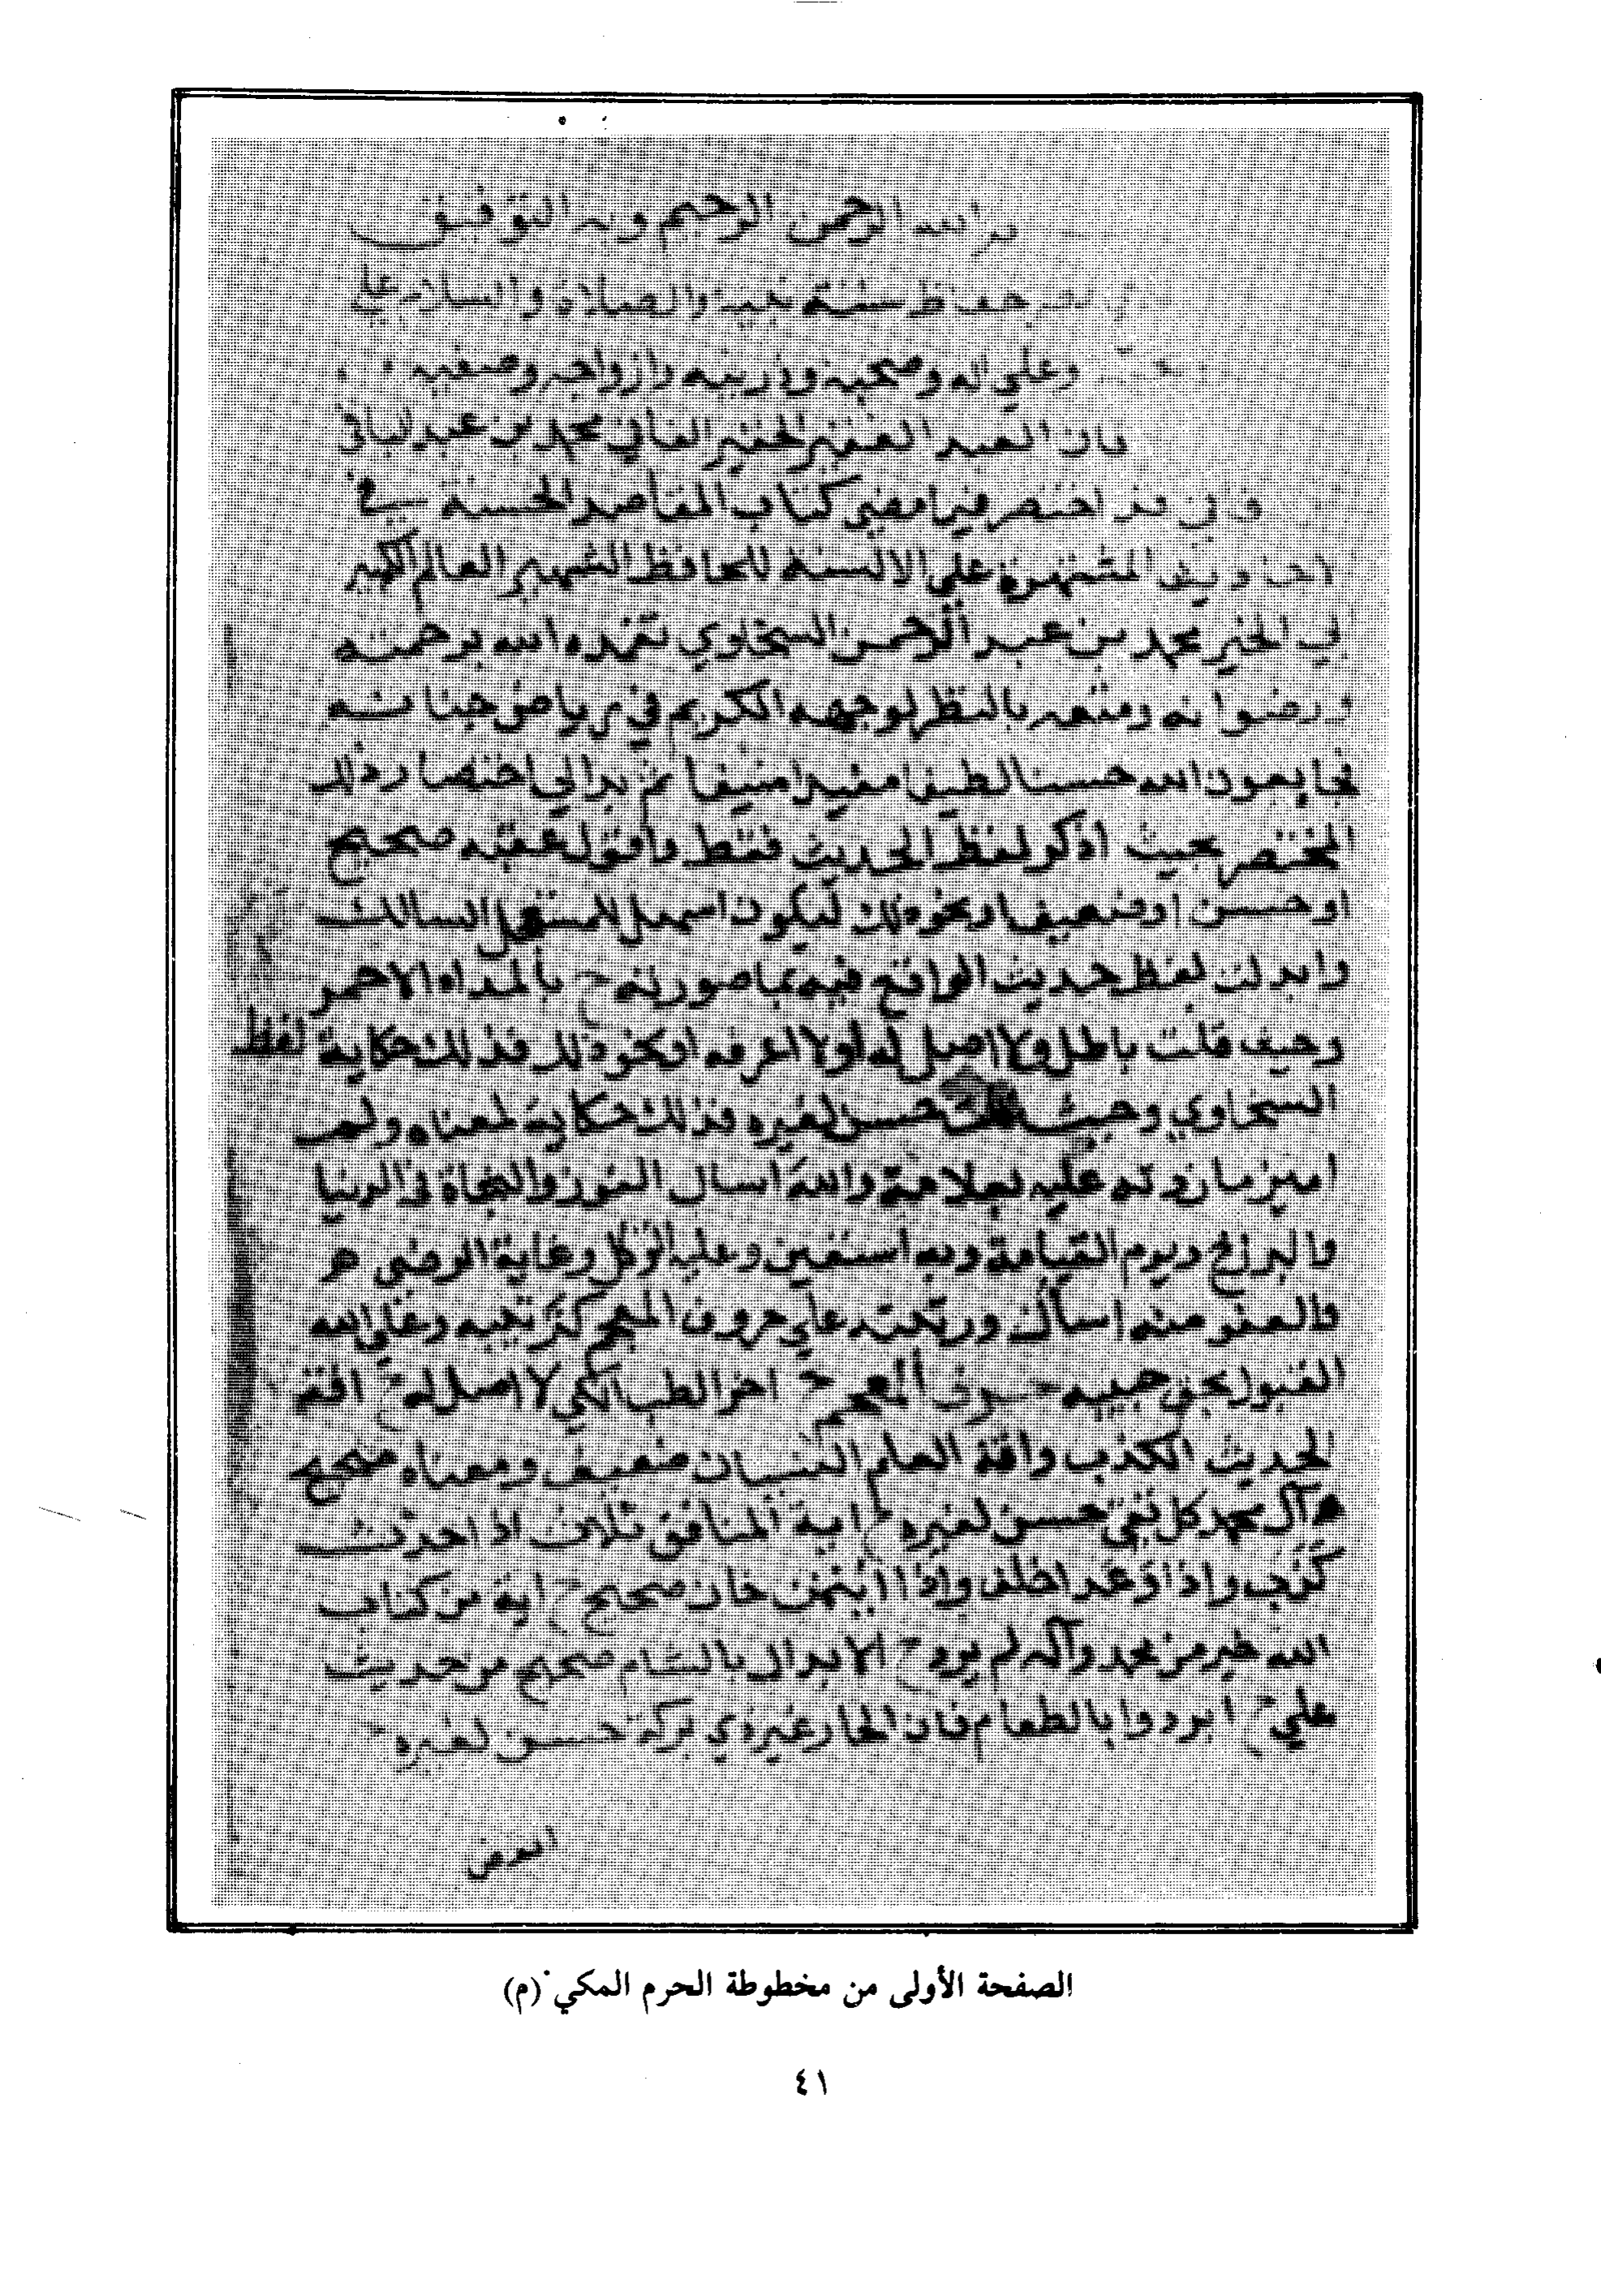 الله الرحمن الرحيم وبه التوفيق
حفاظ سنة نبيه والصلاة والسلام على
وعلى اله وصحبه وذريته وازواجه وصفيه
فان العبد الفقير الحقير الفاني محمد بن عبد الباقي
قد اختصر فيما مضى كتاب المقاصد الحسنة في
المشتهرة على الالسنة للحافظ الشهير العالم الكبير
ابي الخير محمد بن عبد الرحمن السخاوي تغمده الله برحمته
ورضوانه ومتعه بالنظر لوجهه الكريم في رياض جناته
فجا بعون الله حسنا لطيفا مفيدا منيفا ثم بدا لي اختصار ذلك
المختصر بحيث اذكر لفظ الحديث فقط واقول عقبه صحيح
او حسن او ضعيف او نحو ذلك ليكون اسهل للمستعجل السالك
وابدلت لفظ حديث الواقع فيه بما صورته ح بالمداد الاحمر
وحيث قلت باطل ولا اصل له او لا اعرفه او نحو ذلك فذلك حكاية لفظ
السخاوي وحيث قلت حسن لغيره فذلك حكاية لمعناه ولم
اميز ما زدته عليه بعلامة والله اسال الفوز والنجاة في الدنيا
والبرزخ ويوم القيامة وبه استعين وعليه اتوكل وغاية الرضى
والعفو منه اسأل ورتبته على حروف المعجم كترتيبه وعلى الله
القبول بحق حبيبه حرف المعجم ح اخر الطب الكي لا اصل له ح افة
الحديث الكذب وافة العلم النسيان ضعيف ومعناه صحيح
ح آل محمد كل تقي حسن لغيره ح اية المنافق ثلاث اذا حدث
كذب واذا وعد اخلف واذا ايتمن خان صحيح ح اية من كتاب
الله خير من محمد وآله لم يرد ح الابدال بالشام صحيح من حديث
علي ح ابردوا بالطعام فان الحار غير ذي بركة حسن لغيره
الصفحة الأولى من مخطوطة الحرم المكي (م)
٤١